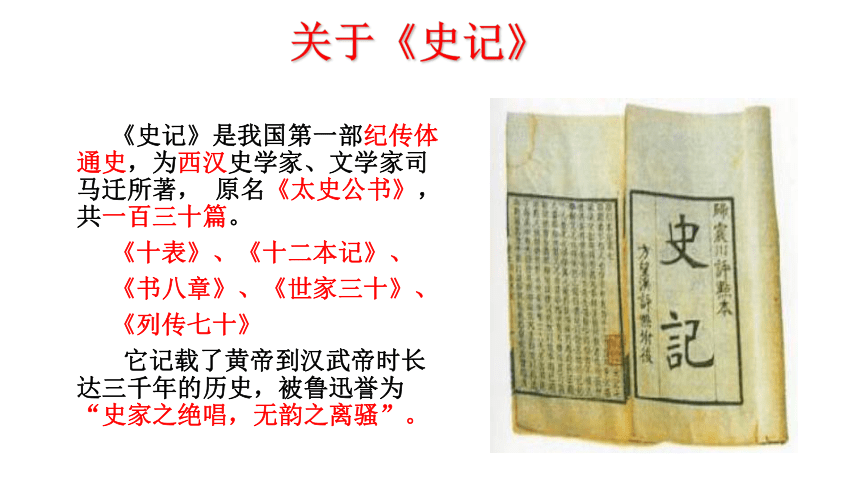 关于《史记》
《史记》是我国第一部纪传体
通史，为西汉史学家、文学家司
马迁所著， 原名《太史公书》，
共一百三十篇。
《十表》、《十二本记》、
《书八章》、《世家三十》、
《列传七十》
它记载了黄帝到汉武帝时长
达三千年的历史，被鲁迅誉为
“史家之绝唱，无韵之离骚”。
歸震川評點本
史記
方望溪評點附後